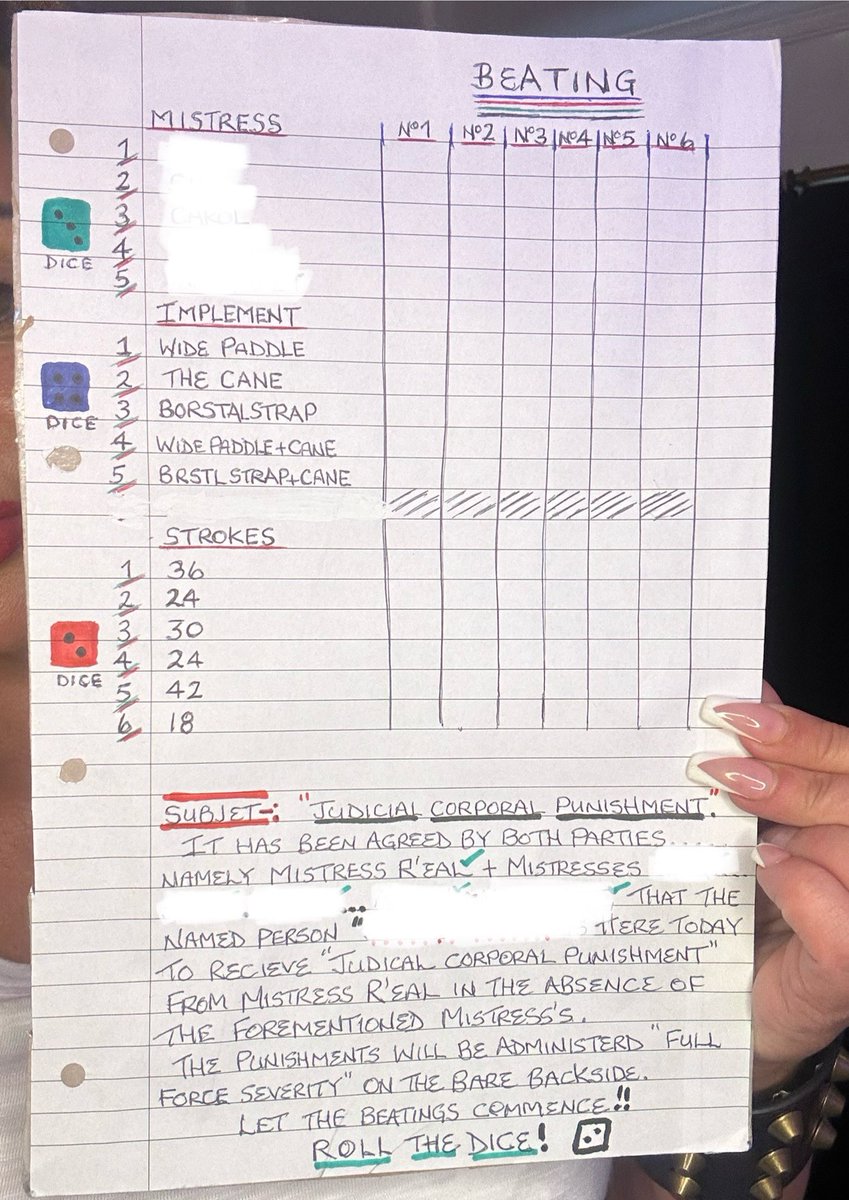 BEATING
MISTRESS Nº1 Nº2 Nº3 Nº4 Nº5 Nº6
1
2
3 CAROL
4
5
DICE
IMPLEMENT
1 WIDE PADDLE
2 THE CANE
3 BORSTALSTRAP
4 WIDE PADDLE+CANE
5 BRSTL STRAP+CANE
DICE
STROKES
1 36
2 24
3 30
4 24
5 42
6 18
DICE
SUBJET-: "JUDICIAL CORPORAL PUNISHMENT."
IT HAS BEEN AGREED BY BOTH PARTIES......
NAMELY MISTRESS R'EAL + MISTRESSES
THAT THE
NAMED PERSON " HERE TODAY
TO RECIEVE "JUDICAL CORPORAL PUNISHMENT"
FROM MISTRESS R'EAL IN THE ABSENCE OF
THE FOREMENTIONED MISTRESS'S.
THE PUNISHMENTS WILL BE ADMINISTERD "FULL
FORCE SEVERITY" ON THE BARE BACKSIDE.
LET THE BEATINGS COMMENCE!!
ROLL THE DICE!